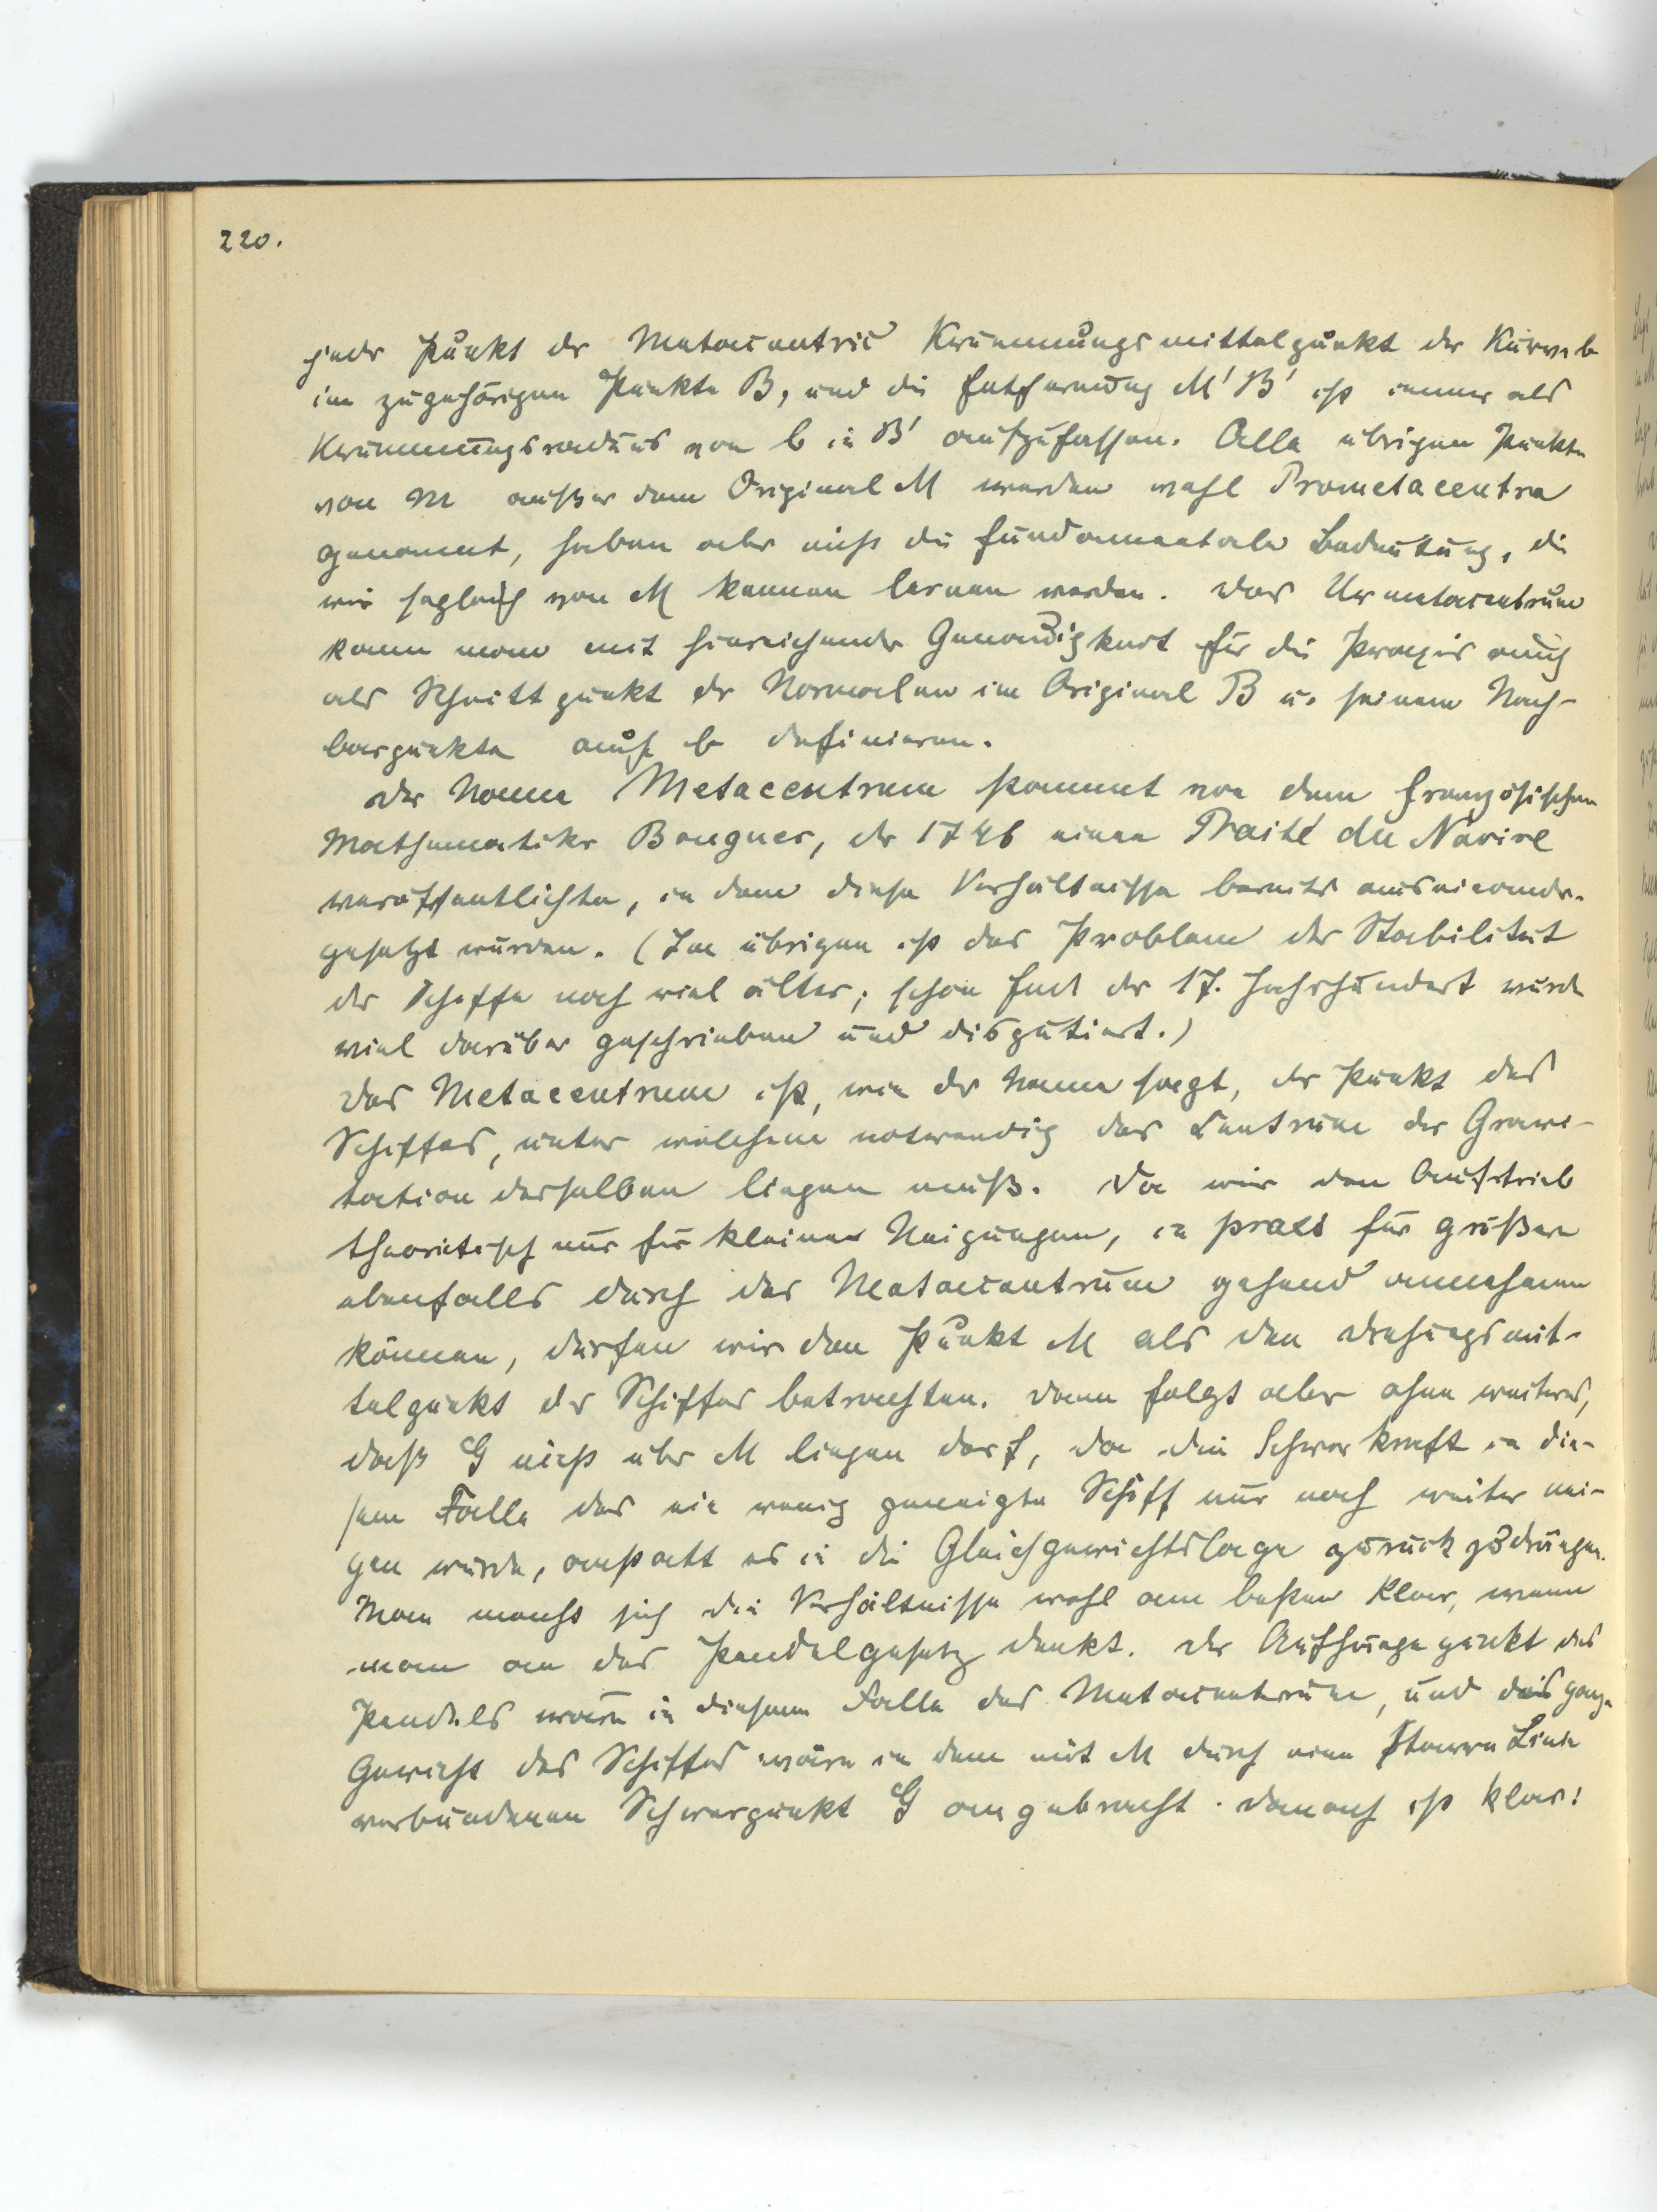 220.
jeder Punkt der Metacentric Krümmungsmittelpunkt der Kurve b
im zugehörigen Punkte B, und die Entfernung M' B' ist immer als
Krümmungsradius von b in B' aufzufassen. Alle übrigen Punkte
von m außer dem Original M werden wohl Prometacentra
genannt, haben aber nicht die fundamentale Bedeutung, die
wir sogleich von M kennen lernen werden. Das Urmetacentrum
kann man mit hinreichender Genauigkeit für die Praxis auch
als Schnittpunkt der Normalen im Original B u. seinem Nach-
barpunkte auf b definieren.
Der Name Metacentrum stammt von dem französischen
Mathematiker Bouguer, der 1746 einen Traité du Navire
veröffentlichte, in dem diese Verhältnisse bereits auseinander-
gesetzt wurden. (Im übrigen ist das Problem der Stabilität
der Schiffe noch viel älter; schon End des 17. Jahrhundert wurde
viel darüber geschrieben und disputiert.)
Das Metacentrum ist, wie der Name sagt, der Punkt des
Schiffes, unter welchem notwendig das Centrum der Gravi-
tation desselben liegen muß. Da wir den Auftrieb
theoretisch nur für kleinere Neigungen, in praxi für größere
ebenfalls durch das Metacentrum gehend annehmen
können, dürfen wir den Punkt M als den Drehungsmit-
telpunkt des Schiffes betrachten. Dann folgt aber ohne weiteres,
daß G nicht über M liegen darf, da die Schwerkraft in die-
sem Falle das ein wenig geneigte Schiff nur noch weiter nei-
gen würde, anstatt es in die Gleichgewichtslage zurück zu drängen.
Man macht sich die Verhältnisse wohl am besten klar, wenn
man an das Pendelgesetz denkt. Der Aufhängepunkt des
Pendels wäre in diesem Falle das Metacentrum, und das ganze
Gewicht des Schiffes wäre in dem mit M durch eine starre Linie
verbundenen Schwerpunkt G angebracht. Danach ist klar: